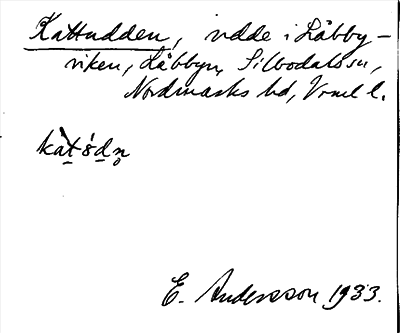 Kattudden, udde i Låbby-
viken, Låbbyn, Silbodals sn,
Nordmarks hd, Vrml l.
E. Andersson 1933.